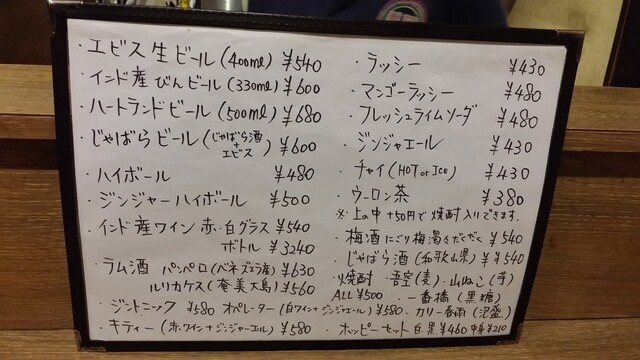 ・エビス生ビール(400ml) ¥540
・インド産びんビール(330ml) ¥600
・ハートランドビール(500ml) ¥680
・じゃばらビール(じゃばら酒+エビス) ¥600
・ハイボール ¥480
・ジンジャーハイボール ¥500
・インド産ワイン 赤・白グラス ¥540
ボトル ¥3240
・ラム酒 パンペロ(ベネズエラ産) ¥630
ルリカケス(奄美大島) ¥560
・ジントニック ¥580 オペレーター(白ワイン+ジンジャエール) ¥580
・キティー(赤ワイン+ジンジャーエール) ¥580
・ラッシー ¥430
・マンゴーラッシー ¥480
・フレッシュライムソーダ ¥480
・ジンジャエール ¥430
・チャイ(HOT or ICE) ¥430
・ウーロン茶 ¥380
※上の中+50円で焼酎入りできます.
・梅酒 にごり梅 ¥540
・じゃばら酒(和歌山県) ¥540
・焼酎 ・吾空(麦)・山ねこ(芋)
ALL ¥500 ・一番橋(黒糖)
・カリー春雨(泡盛)
・ホッピーセット 白 黒 ¥460 中身 ¥210